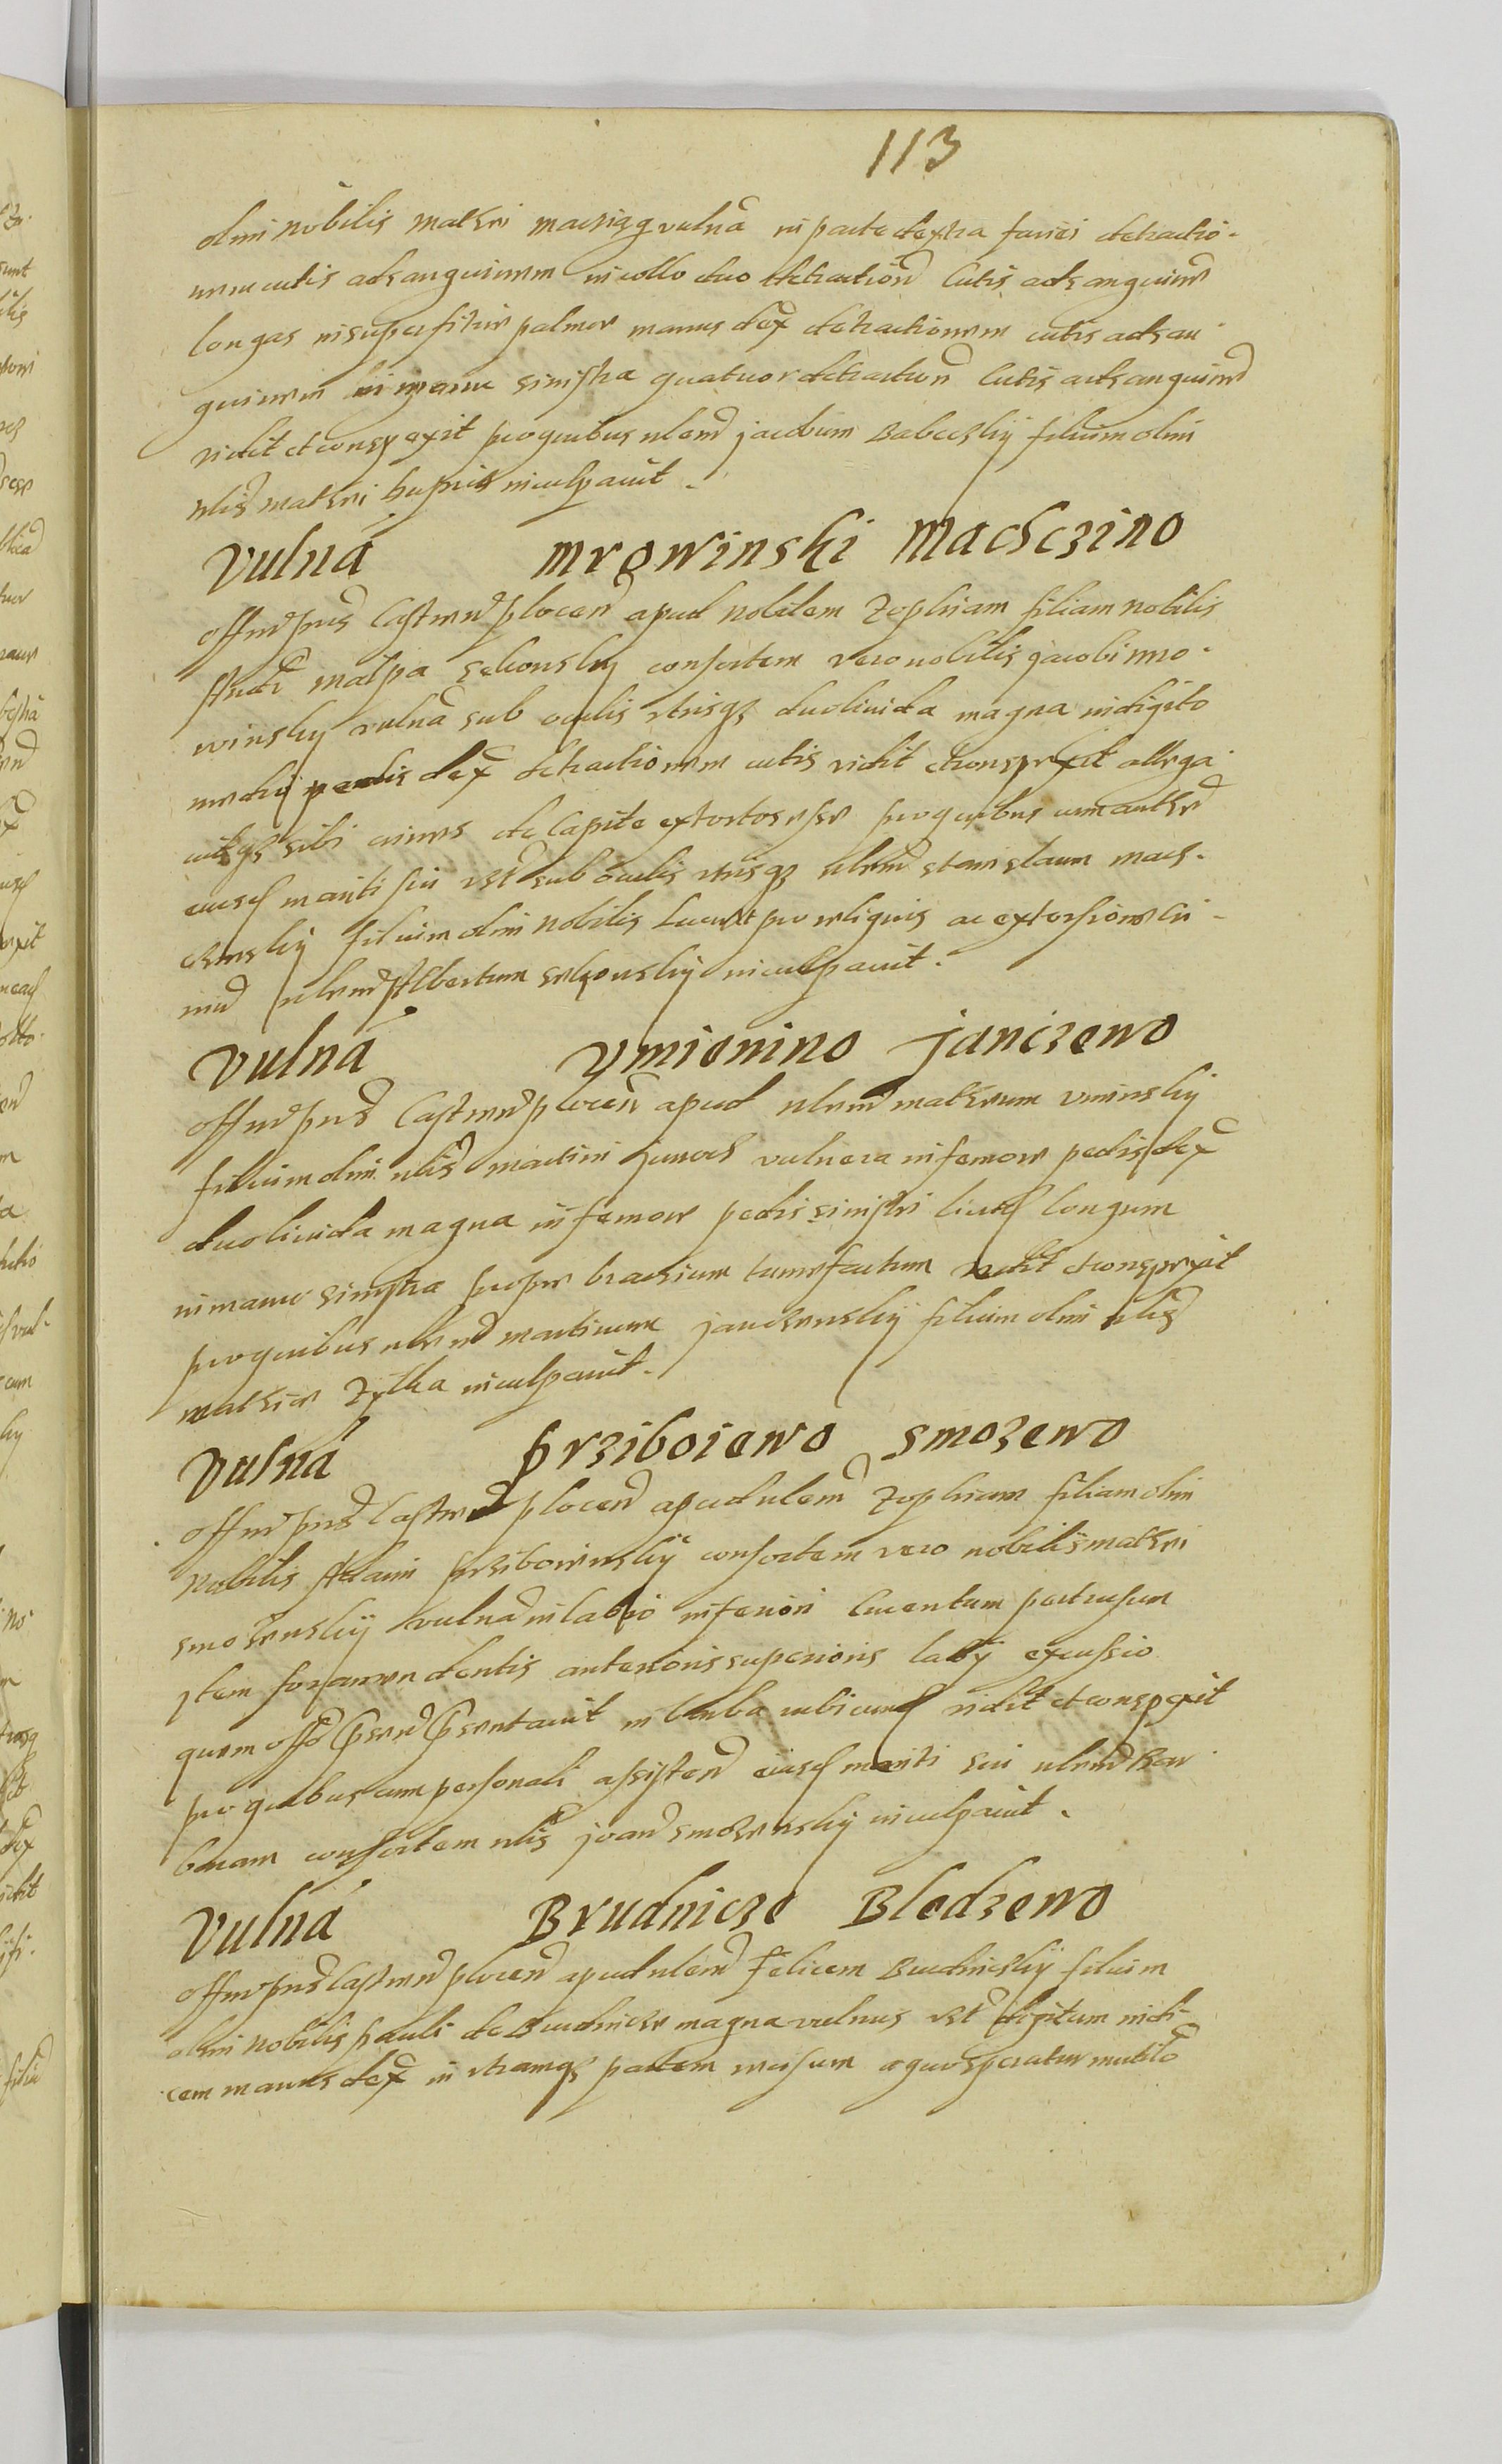 113
olim nobilis Mathei maczieg vulna in parte dextra faciei detractio-
nem cutis ad sanguinem in collo duo detraction cutis ad sanguine
longas in superficie palmae manus dex detractionem cutis ad san
guinem in manu sinistra quatuor detraction cutis ad sanguine
vidit et conspexit pro quibus nlem jacobum Babeczky filium olim
nlis mathei inculpavit.
Vulna Mrowinski Machczino
offm pns Castren plocen apud nobilem Zophiam filiam nobilis
malpa sekonsky consortem vero nobilis jacobi mro-
winsky vulna sub oculis utrisqz duo livida magna in digito
medij pedis dex detractionem cutis vidit et conspexit allega
vitqz sibi crines de capite extortos esse pro quibus cum authe
eiusd mariti sui vzt sub oculis utrisqz nlem stanislaum mach-
czinsky filium olim nobilis pro reliquis ac extorsione cri-
niu nlem Albertum sekonsky inculpavit.
Vulna Vmienino janczewo
offm pns Castren plocen apud nlem matheum vminsky
filium olim nlis martini vulnera in femore pedis dex
duo livida magna in femore pedis sinistri livid longum
in manu sinistra prope brachium tumefactum vidit et conspexit
pro quibus nlem martinum janczewsky filium olim nlis
mathiae Zytka inculpavit.
Vulna Prziboiewo Smozewo
offm pns Castren plocen apud nlem Zophiam filiam olim
Nobilis Adami prziboiewsky consortem vero nobilis mathei
smozewsky vulna in labio inferiori cruentum pertusum
Item foramen dentis anterioris superioris labij excussio
quem offo psen psentavit in bimba rubicund vidit et conspexit
pro quibus cum personali assisten eiusd mariti sui nlem Bar
baram consortem nlis joan smozewsky inculpavit.
Vulna Brudnicze Bledzewo
offm pns Castren plocen apud nlem felicem Brudnicky filium
olim Nobilis Pauli de Brudnicze magna vulnus vzt digitum indi
cem manus dex in utramqz partem incisum a quo speratur mutilo